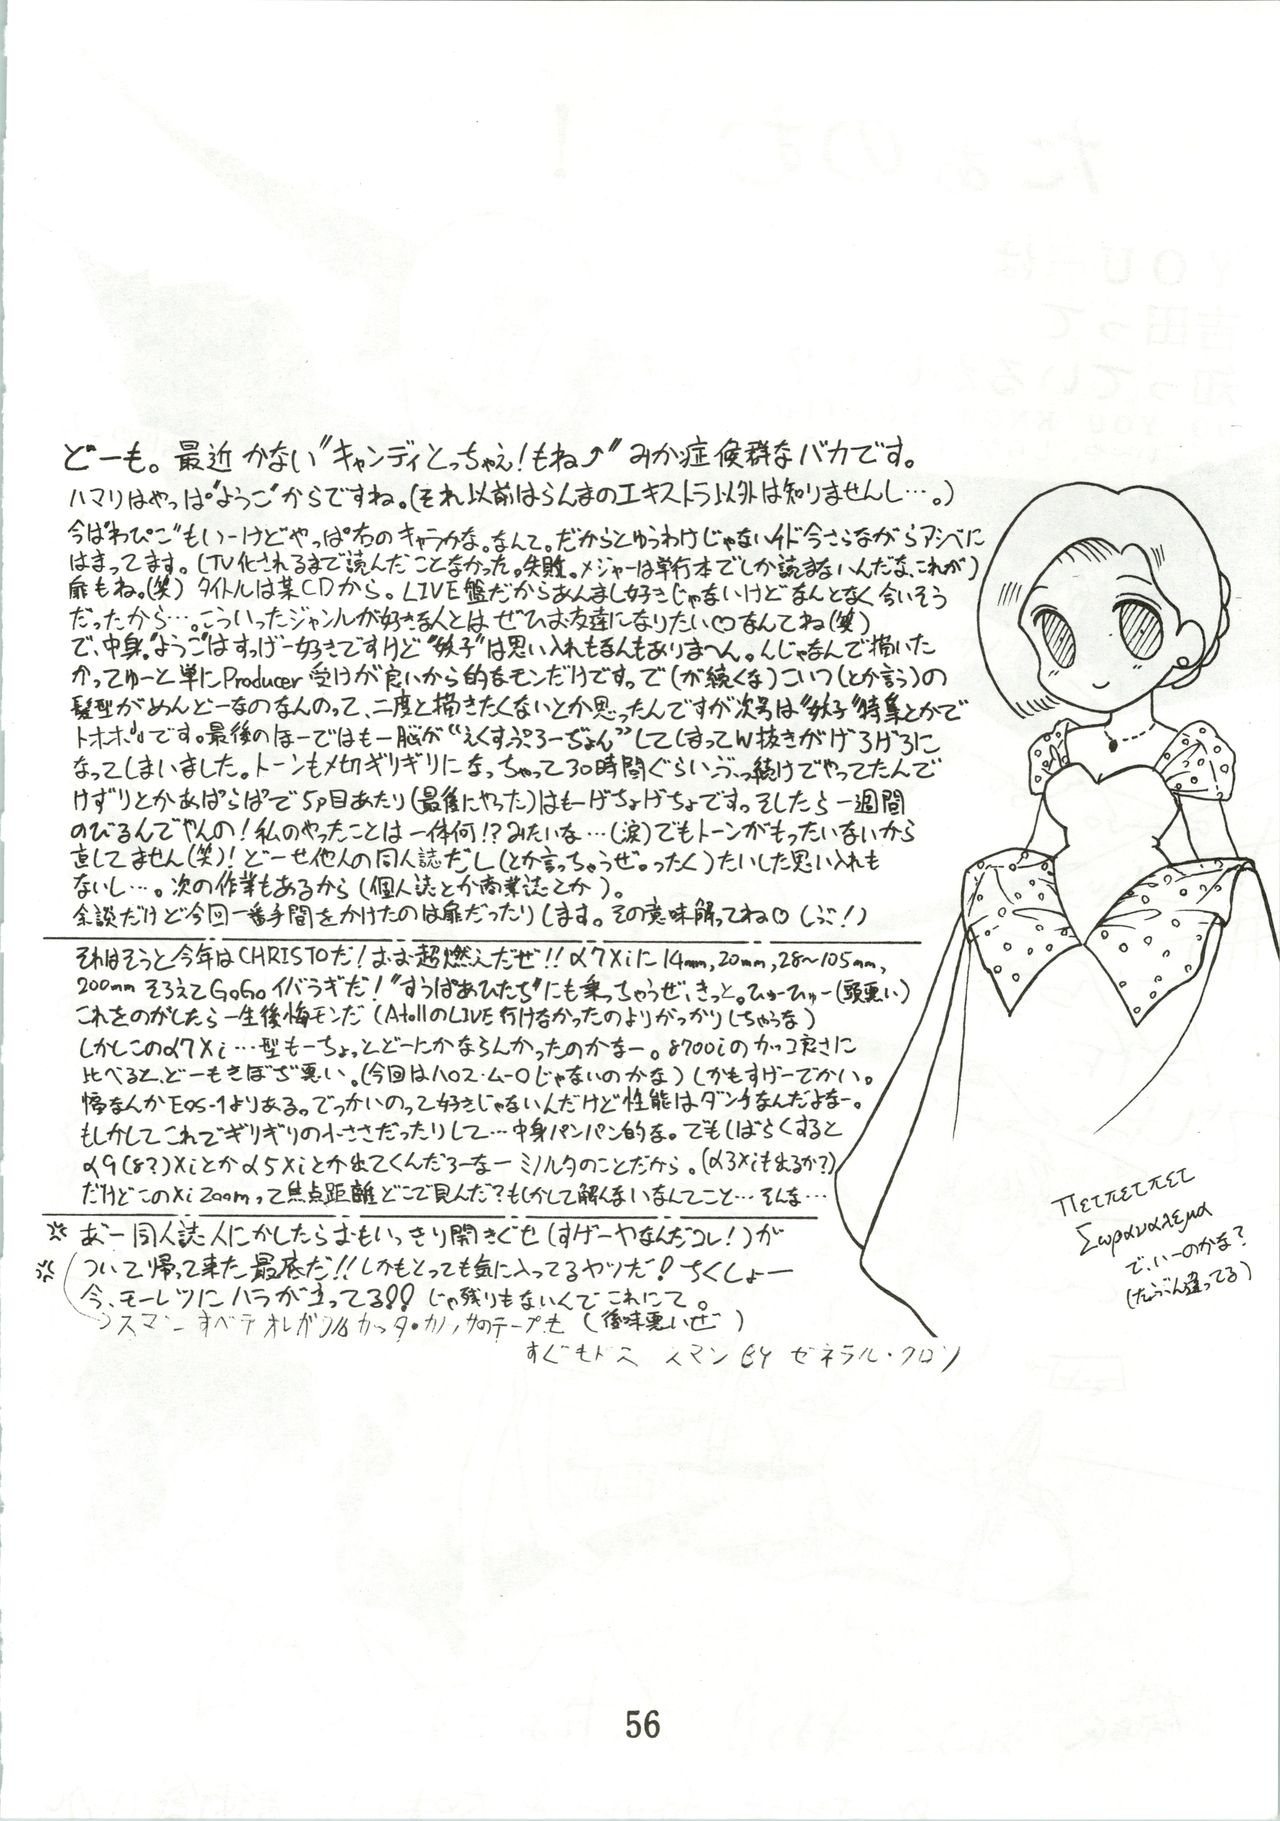 どーも。最近かない"キャンディとっちゃえ!もね⤴"みか症候群なバカです。
ハマリはやっぱ"ようこ"からですね。(それ以前はらんまのエキストラ以外は知りませんし…。)
今は"わぴこ"もいーけどやっぱ右のキャラかな。なんて。だからとゆうわけじゃないけど今さらながらアシベに
はまってます。(TV化されるまで読んだことなかった。失敗。メジャーは単行本でしか読まないんだな、これが)
扉もね。(笑) タイトルは某CDから。LIVE盤だからあんまし好きじゃないけどなんとなく今いそう
だったから…。こういったジャンルが好きな人とはぜひお友達になりたい♡なんてね(笑)
で、中身。"ようこ"はすっげー好きですけど"妖子"は思い入れもなんもありませーん。んじゃなんで描いた
かってゅーと単にProducer受けが良いから的なモンだけです。で(が続くな)こいつ(とか言う)の
髪型がめんどーなのなんのって、二度と描きたくないとか思ったんですが次号は"妖子"特集とかで
トホホです。最後のほーではもー脳が"えくすぷろーぢょん"してしまってW抜きがげろげろに
なってしまいました。トーンも〆切ギリギリになっちゃって30時間ぐらいぶっ続けでやってたんで
けずりとかあぱらぱで5p目あたり(最後にやった)はもーげちょげちょです。そしたら一週間
のびるんでやんの!私のやったことは一体何!?みたいな…(涙)でもトーンがもったいないから
直してません(笑)!どーせ他人の同人誌だし(とか言っちゃうぜ。ったく)たいした思い入れも
ないし…。次の作業もあるから(個人誌とか商業誌とか)。
余談だけど今回一番手間をかけたのは扉だったりします。その意味解ってね♡(しぶ!)
それはそうと今年はCHRISTOだ!おお超燃えだぜ!!α7Xiに14mm,20mm,28〜105mm,
200mmそろえてGoGoイバラギだ!"すうぱあひたち"にも乗っちゃうぜ、きっと。ひゅーひゅー(頭悪い)
これをのがしたら一生後悔モンだ(AtollのLIVE行けなかったのよりがっかりしちゃうな)
しかしこのα7Xi…型もーちょっとどーにかならんかったのかなー。8700iのカッコ良さに
比べると、どーもきぼぢ悪い。(今回はハロス・ムーロじゃないのかな)しかもすげーでかい。
幅なんかEOS-1よりある。でっかいのって好きじゃないんだけど性能はダンチなんだよなー。
もしかしてこれでギリギリの小ささだったりして…中身パンパン的な。でもしばらくすると
α9(8?)Xiとかα5Xiとか出てくんだろーなーミノルタのことだから。(α3Xiも出るか?)
だけどこのXi Zoomって焦点距離どこで見んだ?もしかして解んないなんてこと…そんな…
あー同人誌人にかしたらおもいっきり開きぐせ(すげーやなんだコレ!)が
ついて帰って来た最底だ!!しかもとっても気に入ってるヤツだ!ちくしょー
今、モーレツにハラが立ってる!!じゃ残りもないんでこれにて。
スマン すべテ オレガ カッタ・カノッサのテープも (後味悪いぜ)
すぐもドス スマン BY ゼネラル・クロン
Πετπετπετ
Σωραναλεμα
で、いーのかな?
(たぶん違ってる)
56